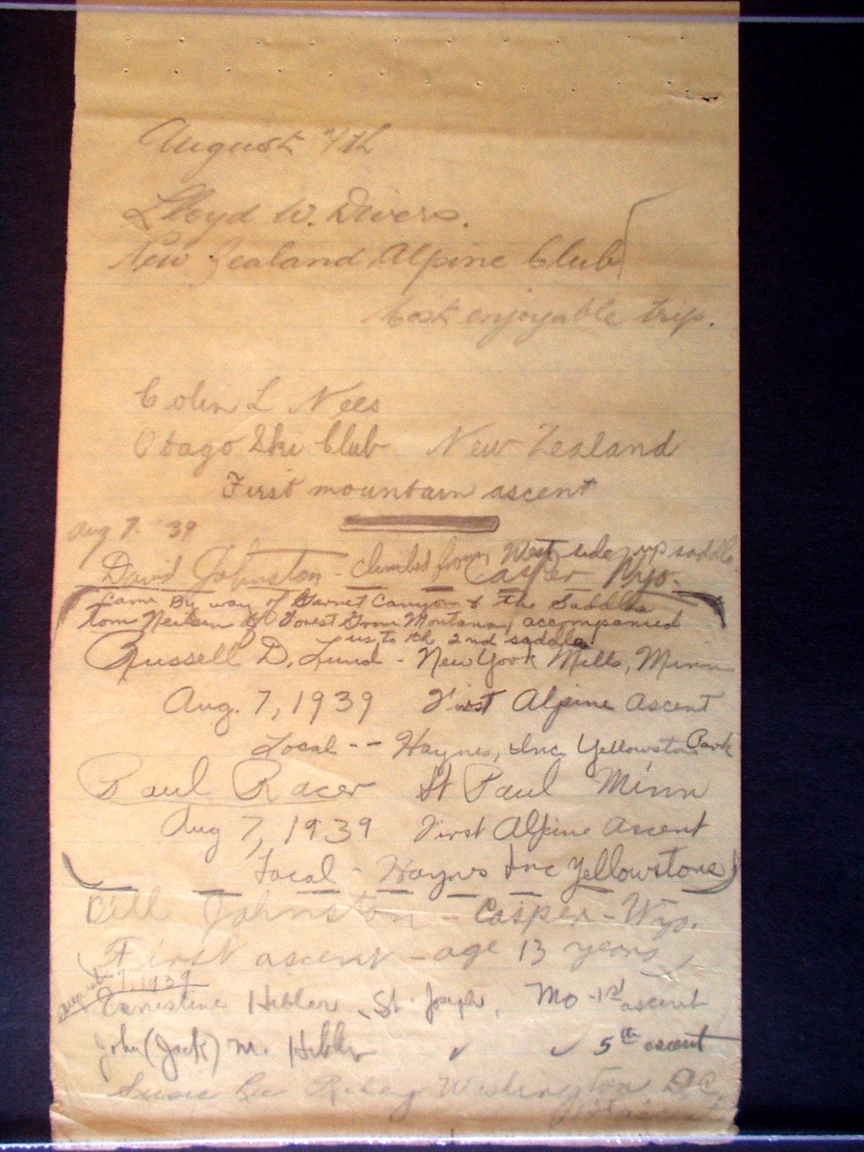 August 7th
Lloyd W. Divers.
New Zealand Alpine Club
Most enjoyable trip.
Colin L Nees
Otago Ski Club New Zealand
First mountain ascent
Aug 7 '39
David Johnston - climbed from West side up saddle
Casper Wyo.
Came By way of Garnet Canyon & the Saddle
Tom Neilsen of Forest Grove Montana, accompanied
us to th 2nd saddle
Russell D. Lund - New York Mills, Minn
Aug. 7, 1939 First Alpine Ascent
Local -- Haynes, Inc Yellowstone Park
Paul Racer St Paul Minn
Aug 7, 1939 First Alpine Ascent
Local - Haynes Inc Yellowstone
Bill Johnston - Casper - Wyo.
First ascent - age 13 years
August 7, 1939
Ernestine Hibler, St. Joseph, Mo - 1st ascent
John (Jack) M. Hibler ✓ ✓ 5th ascent
Susie Washington D.C.
ascent